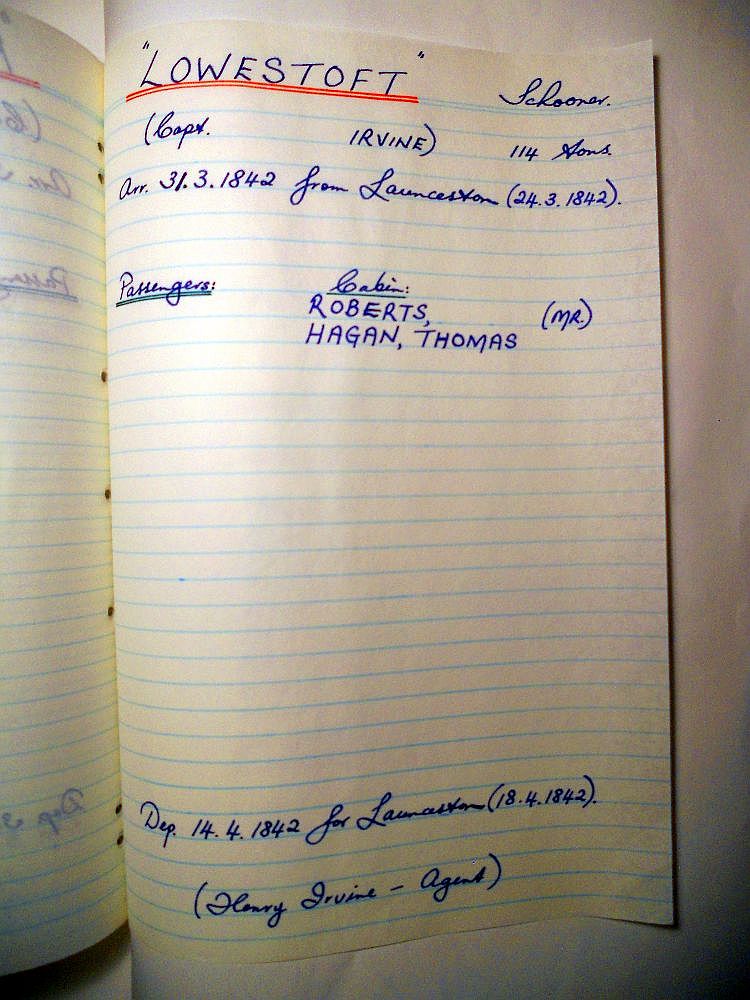 "LOWESTOFT" Schooner.
(Capt. IRVINE) 114 tons.
Arr. 31.3.1842 from Launceston (24.3.1842).
Passengers: Cabin:
ROBERTS, (MR.)
HAGAN, THOMAS
Dep. 14.4.1842 for Launceston (18.4.1842).
(Henry Irvine - Agent)